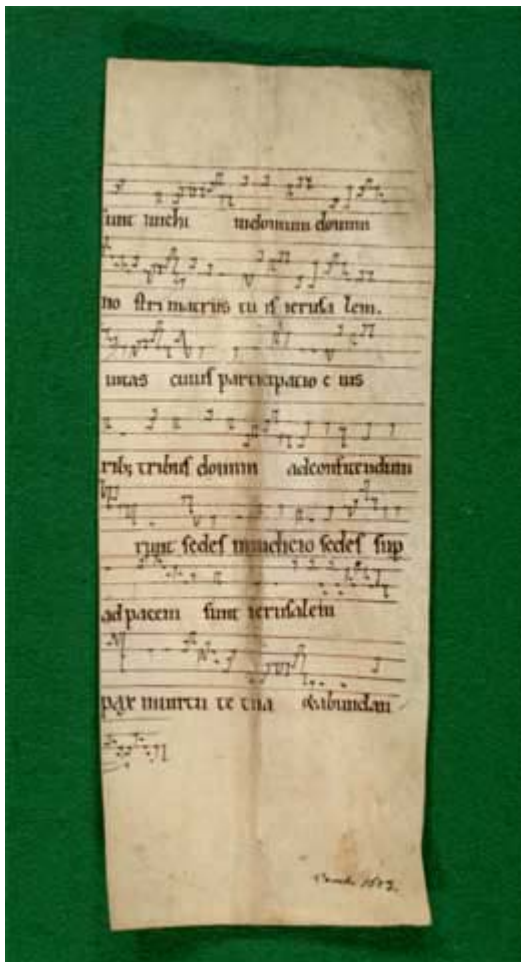 sunt michi indomum domini
no stri inatriis tu is ierusa lem.
uitas cuius participatio e ius
ribꝫ tribus domini adconfitendum
runt sedes iniudicio sedes sup
ad pacem sunt ierusalem
pax inuirtu te tua &abundan
1583.